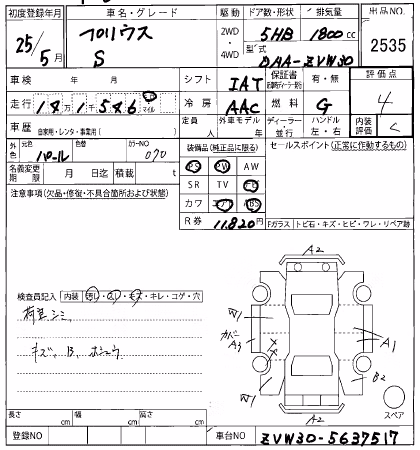 初度登録年月 車名・グレード 駆動 ドア数・形状 排気量 出品NO
25年 5月 プリウス S 2WD・4WD 5HB 1800cc 2535
型式 DAA-ZVW30
車検 年 月 シフト IAT 保証書 有・無 評価点 4
走行 1 8万 1千 5 8 6 km マイル 冷房 AAC 燃料 G
車歴 自家用・レンタ・事業用( ) 定員 人 外車モデル 年 ディーラー・並行 ハンドル 左・右 内装評価 C
外色 元色 パール 色替 カラーNO 070 装備品(純正品に限る) セールスポイント(正常に作動するもの)
名義変更期限 月 日迄 積載 t PS PW AW
注意事項(欠品・修復・不具合箇所および状態) SR TV
カワ エアB ABS
R券 11,820円 Fガラス トビ石・キズ・ヒビ・ワレ・リペア跡
A2
検査員記入 内装 汚レ・スレ・キズ・キレ・コゲ・穴
荷室シミ W1
カバー A3 A1
キズ、B、ホシュウ
W1 B2
スペア
長さ cm 幅 cm 高さ cm A2
登録NO 車台NO ZVW30-5637517